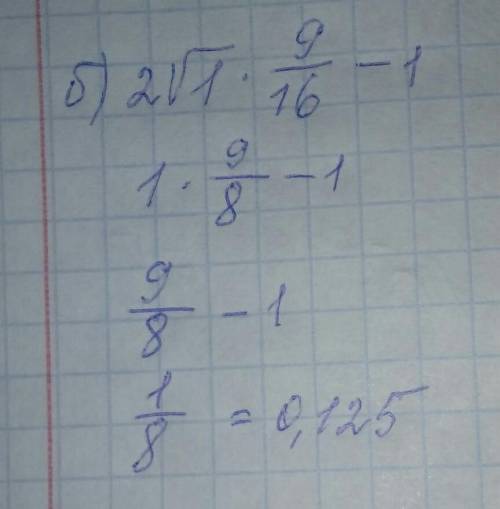 б) 2√1 · 9/16 − 1
1 · 9/8 − 1
9/8 − 1
1/8 = 0,125